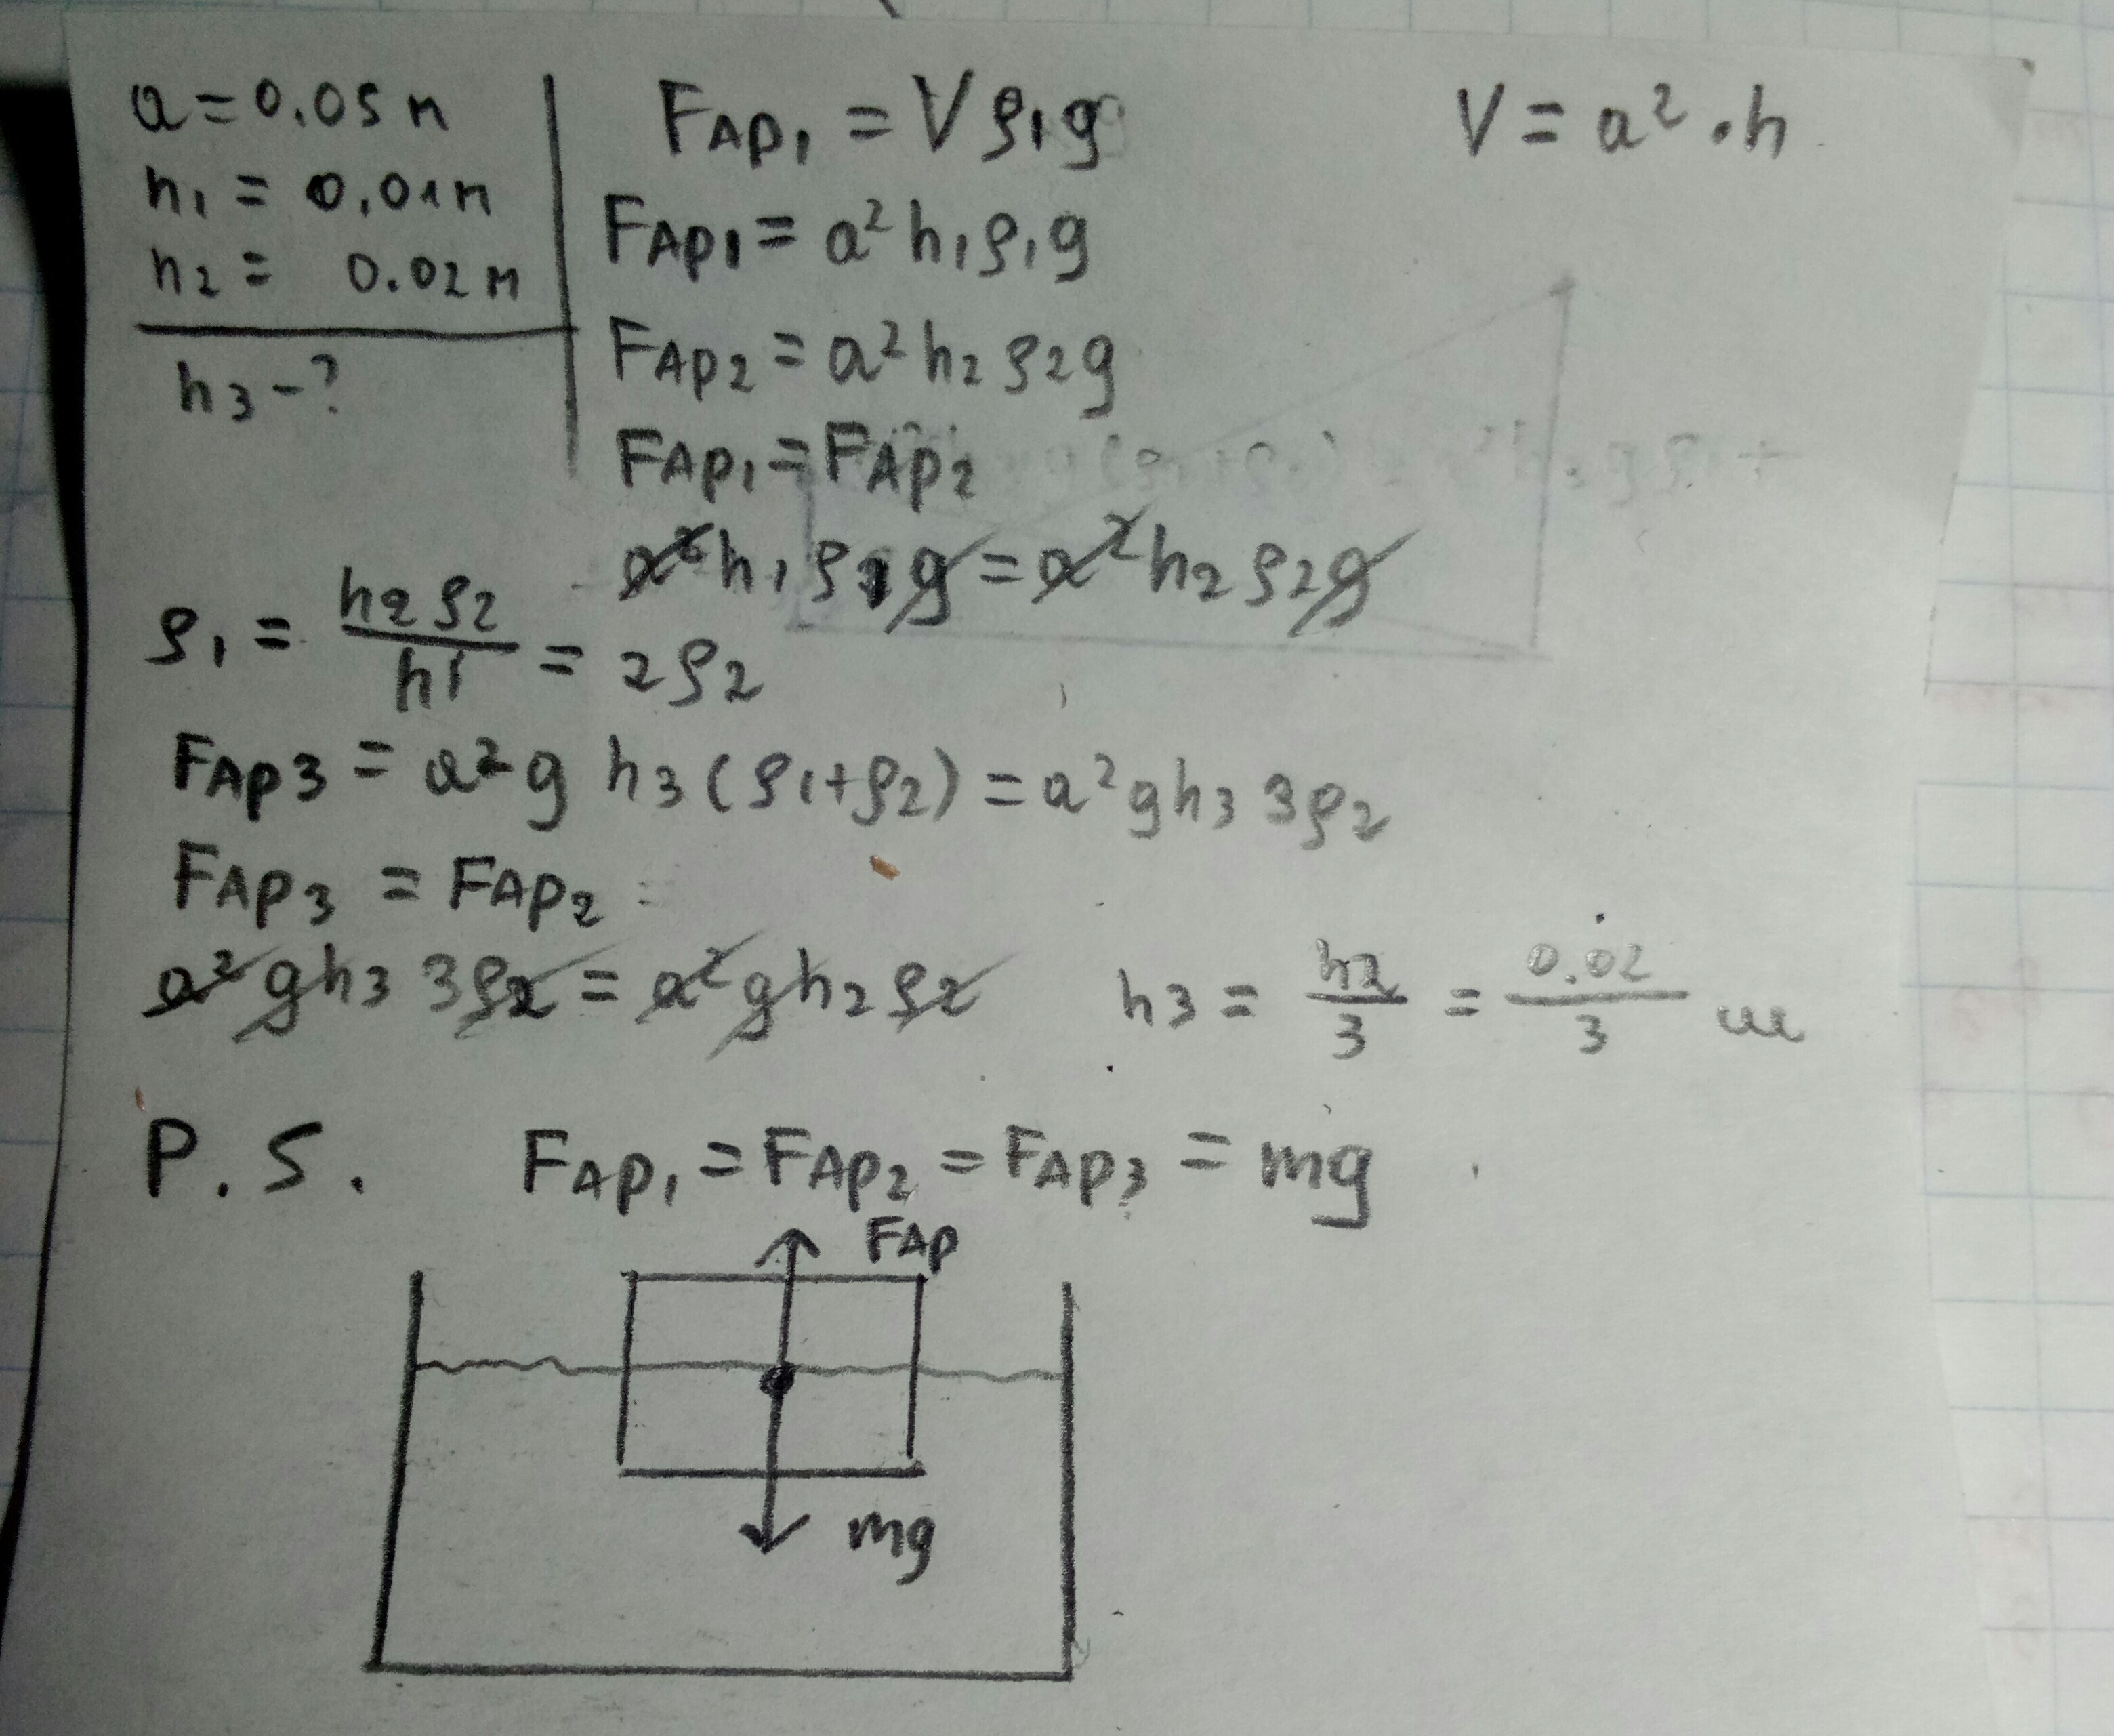 a = 0.05 м
h₁ = 0,01м
h₂ = 0.02м
h₃ - ?
FАр₁ = Vρ₁g
V = a² · h
FАр₁ = a²h₁ρ₁g
FАр₂ = a²h₂ρ₂g
FАр₁ = FАр₂
a²h₁ρ₁g = a²h₂ρ₂g
ρ₁ = h₂ρ₂/h₁ = 2ρ₂
FАр₃ = a²g h₃(ρ₁+ρ₂) = a²gh₃3ρ₂
FАр₃ = FАр₂
a²gh₃3ρ₂ = a²gh₂ρ₂ h₃ = h₂/3 = 0.02/3 м
P.S. FАр₁ = FАр₂ = FАр₃ = mg
FАр
mg